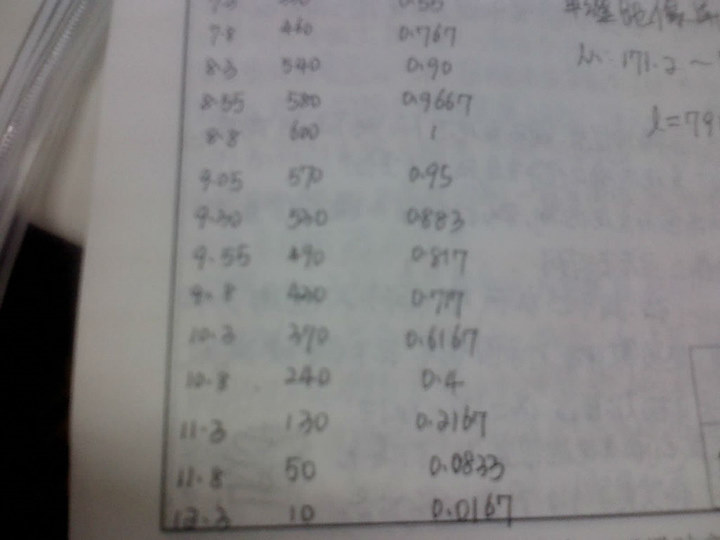 7.8 460 0.767
8.3 540 0.90
8.55 580 0.9667
8.8 600 1
9.05 570 0.95
9.30 530 0.883
9.55 490 0.817
9.8 430 0.717
10.3 370 0.6167
10.8 240 0.4
11.3 130 0.2167
11.8 50 0.0833
12.3 10 0.0167
171.2 ~
l=79